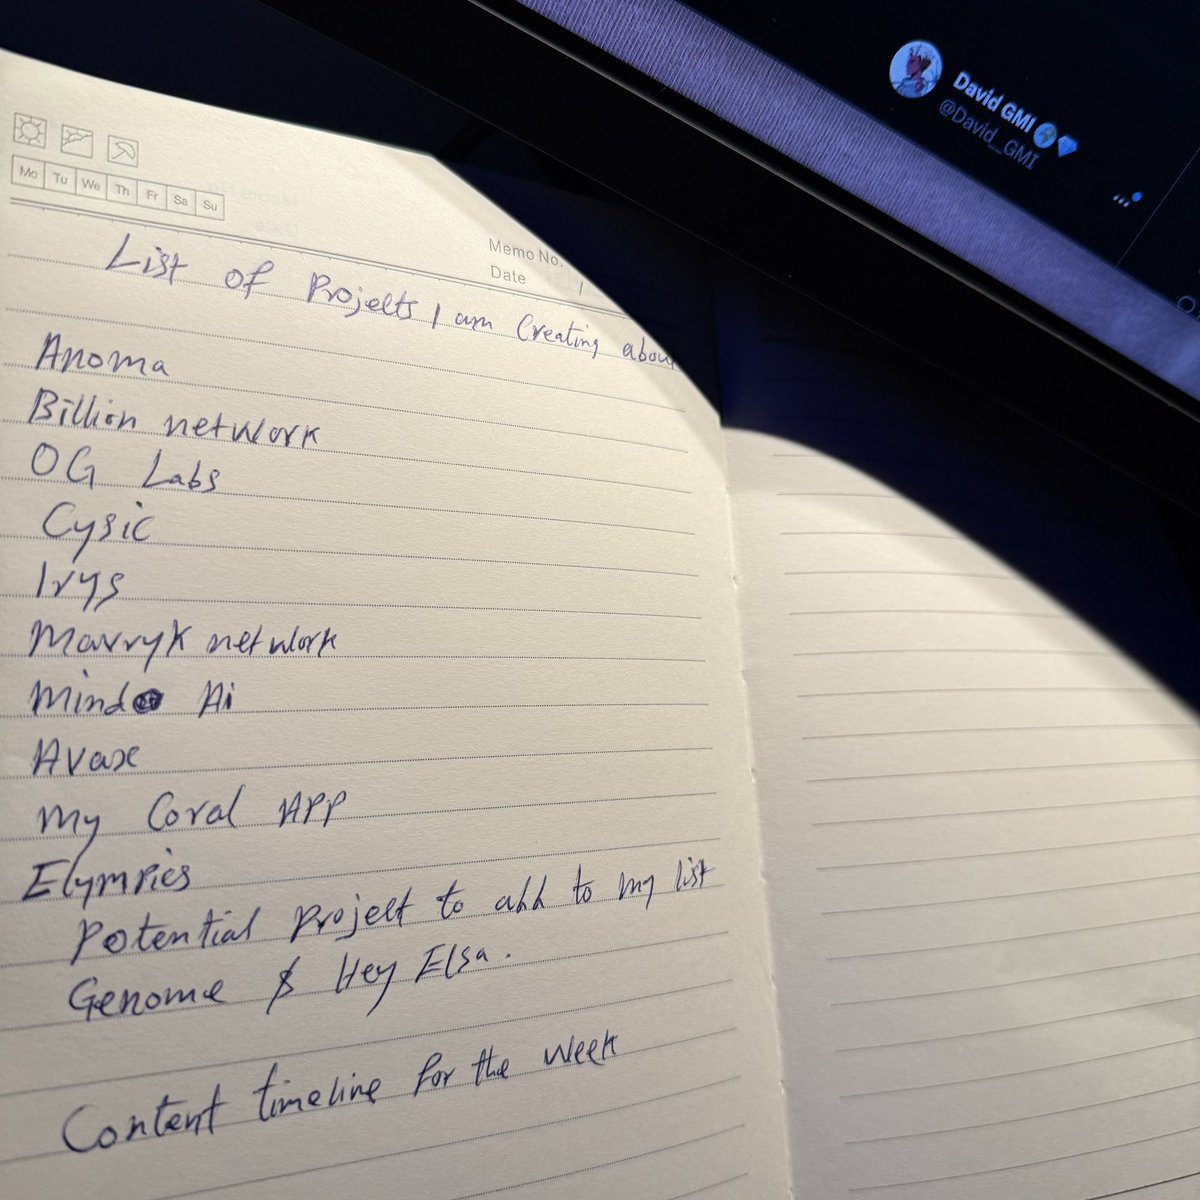 David GMI
@David_GMI
Mo Tu We Th Fr Sa Su
Memo No.
Date /
List of Projects I am Creating about
Anoma
Billion network
OG Labs
Cysic
Irys
Mavryk network
Mind Ai
Avax
My Coral APP
Elympics
Potential Project to add to my list
Genome & Hey Elsa.
Content timeline for the week